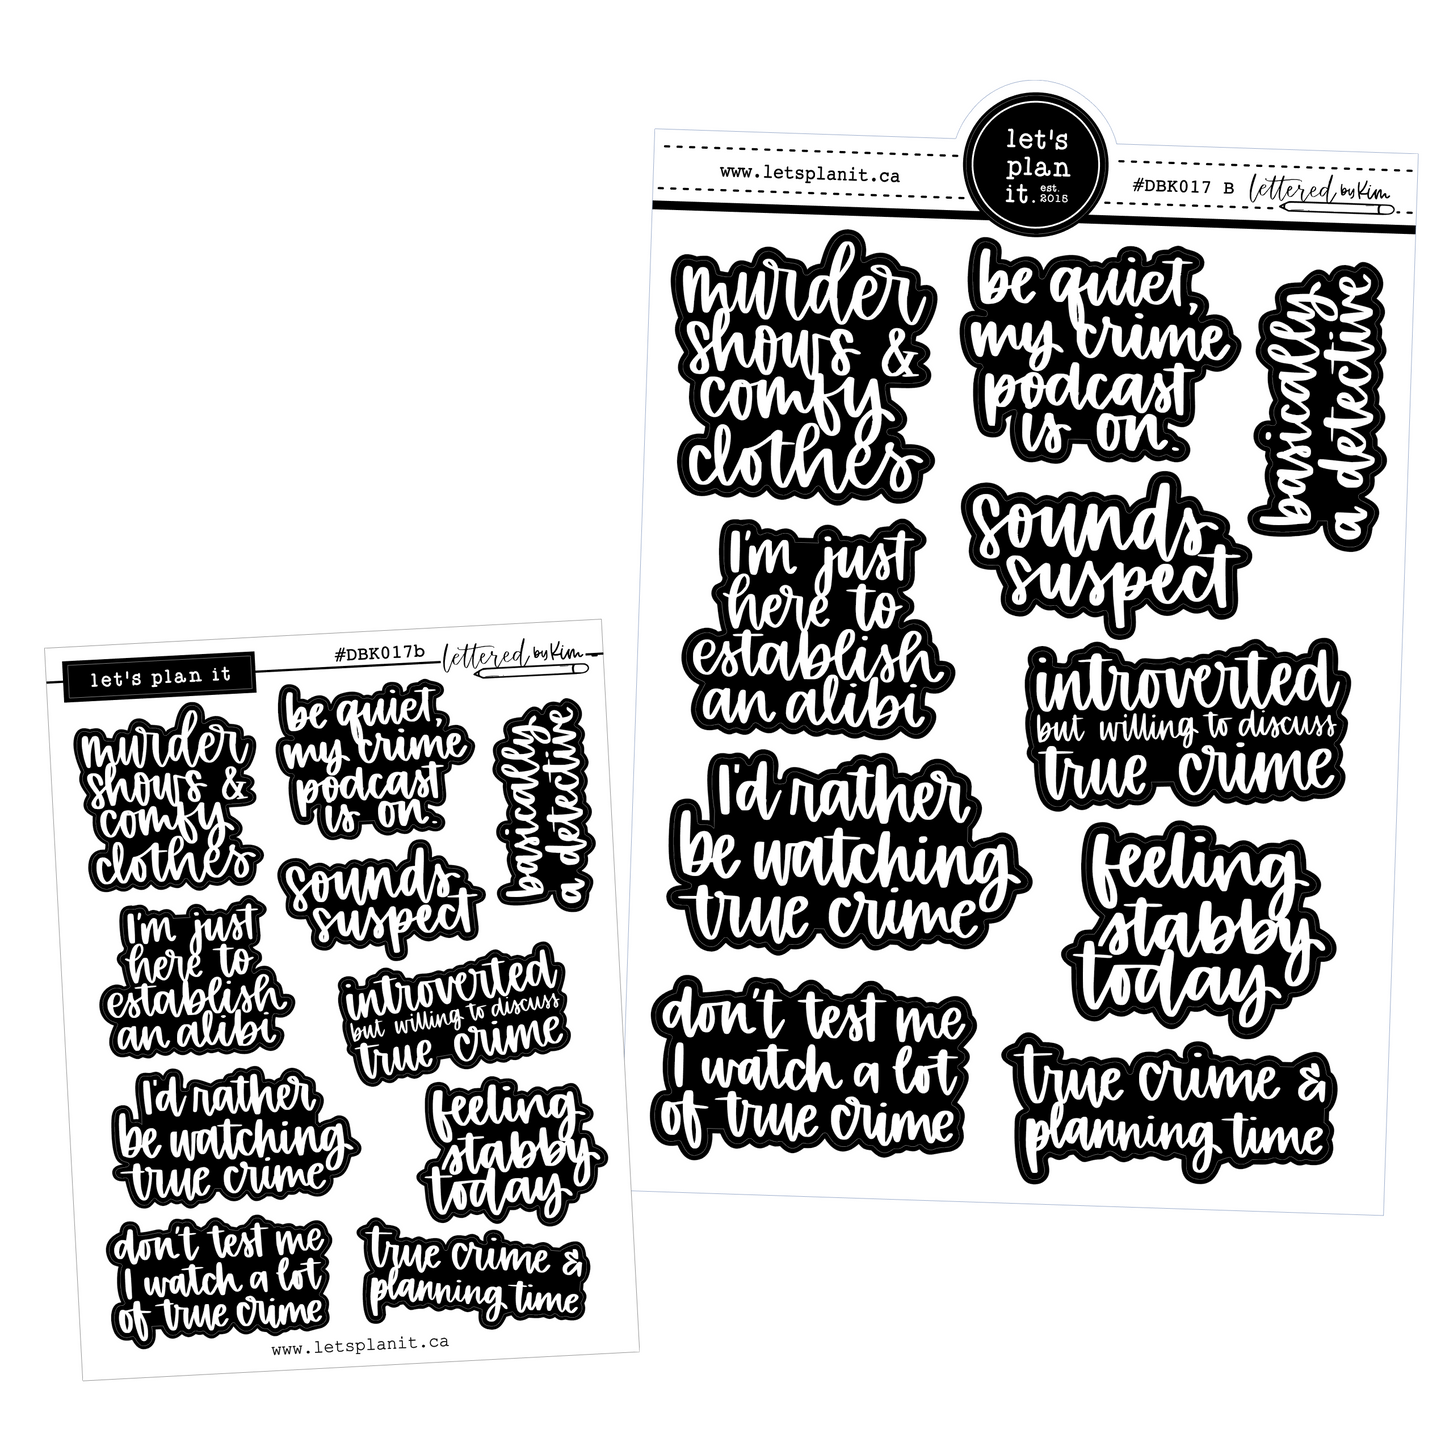 let's plan it
#DBK017b
lettered by Kim
murder
shows &
comfy
clothes
be quiet,
my crime
podcast
is on.
basically
a detective
sounds
suspect
I'm just
here to
establish
an alibi
introverted
but willing to discuss
true crime
I'd rather
be watching
true crime
feeling
stabby
today
don't test me
I watch a lot
of true crime
true crime &
planning time
www.letsplanit.ca
www.letsplanit.ca
let's
plan
it. est. 2015
#DBK017 B
lettered by Kim
murder
shows &
comfy
clothes
be quiet,
my crime
podcast
is on.
basically
a detective
sounds
suspect
I'm just
here to
establish
an alibi
introverted
but willing to discuss
true crime
I'd rather
be watching
true crime
feeling
stabby
today
don't test me
I watch a lot
of true crime
true crime &
planning time